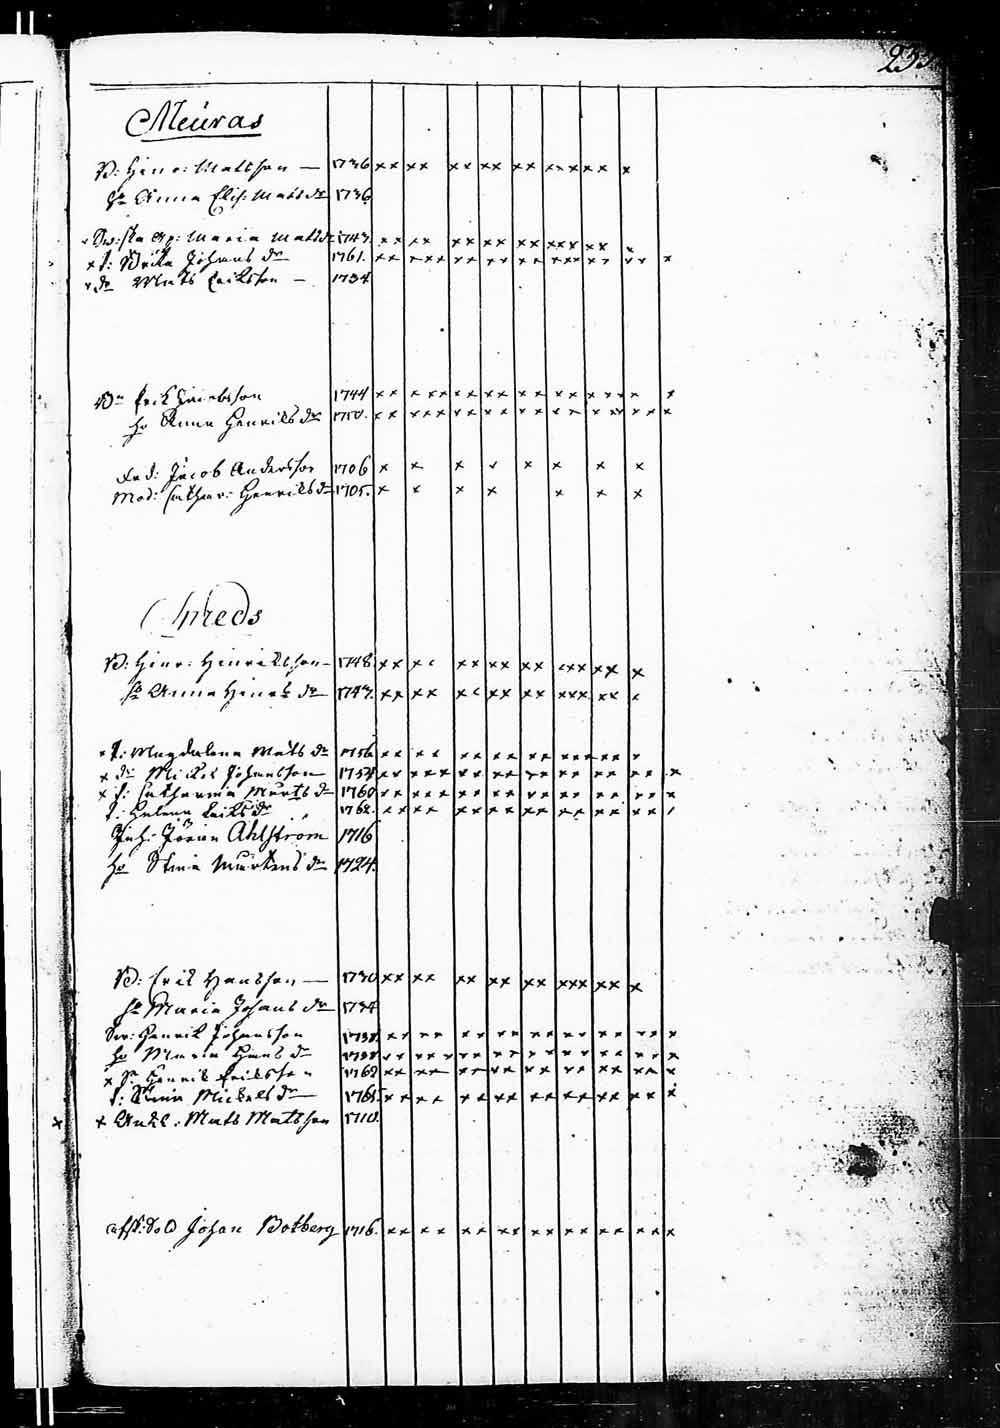 233
Meuras
B: Hinr: Mattson — 1736 xx xx xx xx xx xxx xx x
Hu Anna Elis: Mats dr 1736
x Maria Mats dr 1743. xx xx xx xx xx xxx xx x
x P: Brita Johans dr 1761. xx xxx xx xx xx xxx xx xx x
x dr Mats Eriksson — 1734
Bn Erick Jacobsson 1744 xx xxx xx xx xx xx xxx x x
hu Anna Henriks dr 1750. xx xxx xx xx xx xx xx xxx x
Fad: Jacob Andersson 1706 x x x x x x x x
Mod: Cathar: Henriks dr 1705. x x x x x x x
Spreds
B: Hinr: Hinriksson — 1748 xx xx xx xx xx xxx xx x
hu Anna Hinrks dr 1747. xx xx xx xx xx xxx xx x
x P: Magdalena Mats dr 1756 xx xx xx xx xx xxx xx x
x dr Mickel Johansson 1754 xx xxx xx xx xx xx xx xx x
x P: Catharina Marts dr 1760 xx xx xx xx xx xx xx xx x
P: Helena Eriks dr 1762. xx xx xx xx xx xx xx xx x
Inh: Jöran Ahlström 1716
hu Stina Mårtens dr 1724.
B: Erik Hansson — 1730 xx xx xx xx xx xxx xx x
hu Maria Johans dr 1734
Sw: Henrik Johansson 1738. xx xx xx xx xx xx xx xx x
hu Maria Hans dr 1738 xx xxx xx xx xx xx xx xx x
x Sn Henrik Eriksson 1762 xx xx xx xx xx xx xx xx x
P: Stina Mickels dr 1765 xx xx xx xx xx xx xx xx x
x x Mats Matsson 1710.
afsk: Sold Johan Botberg 1716. xx xx xx xx xx xx xx xx x